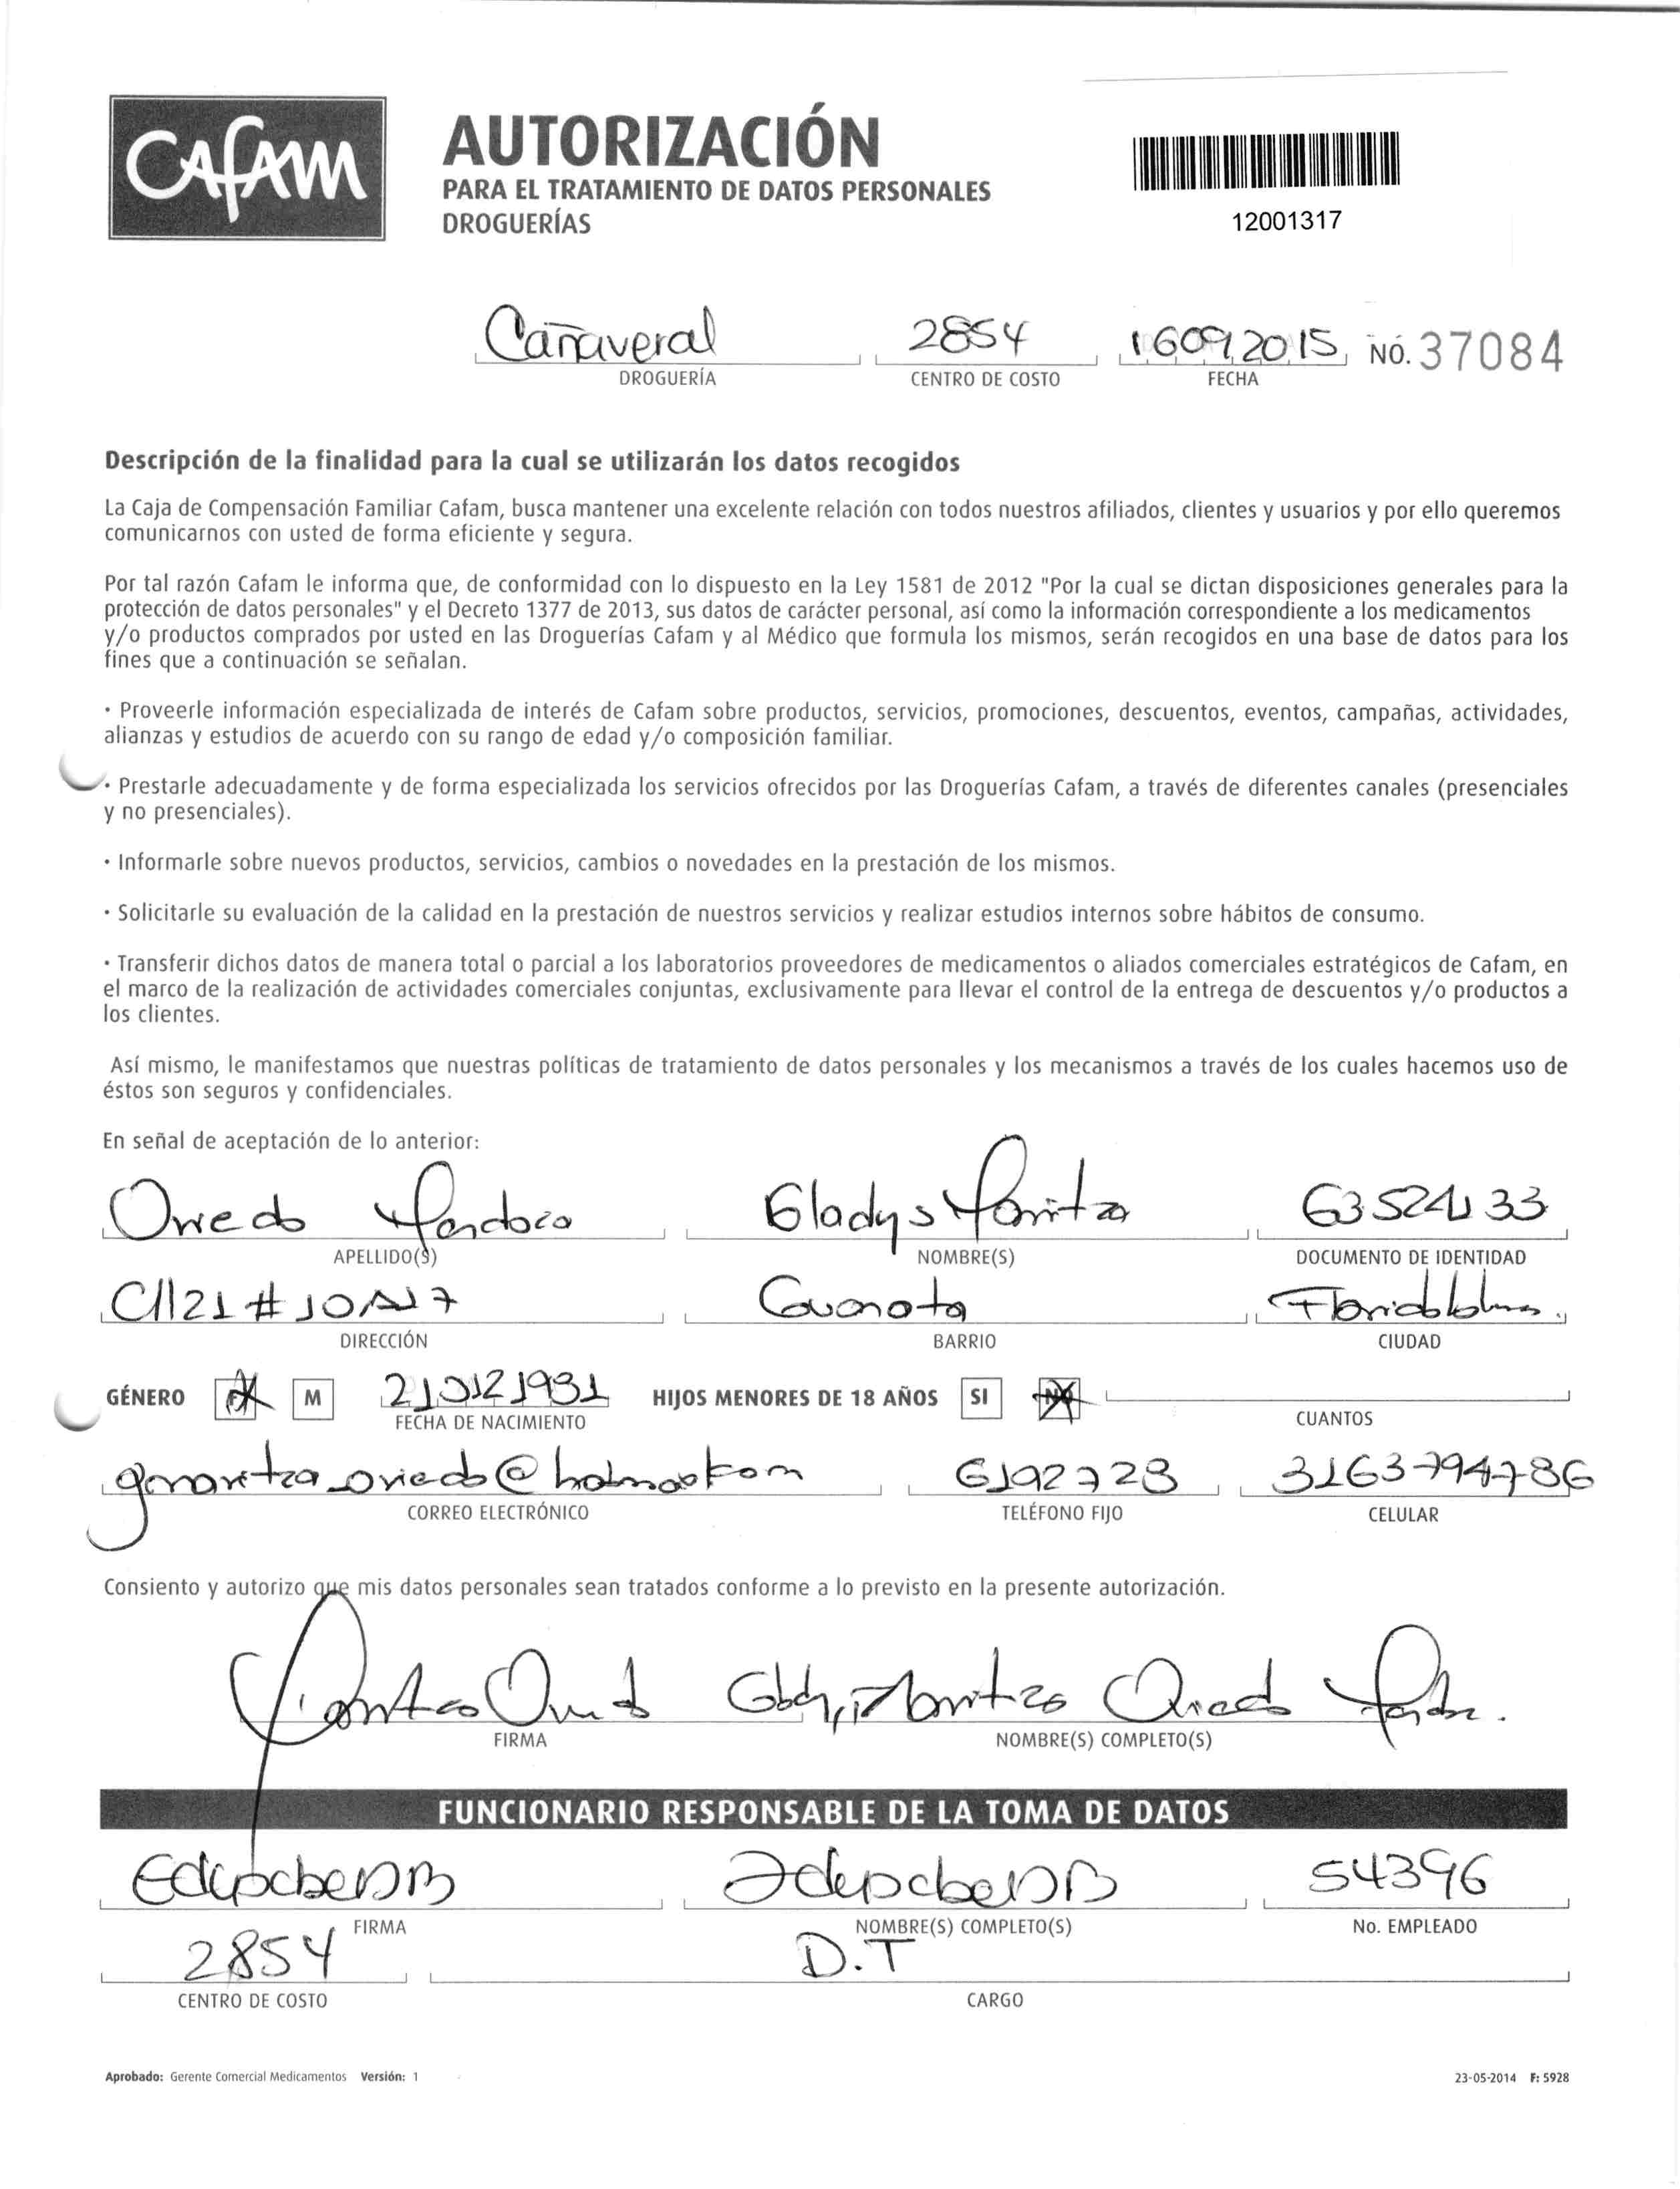 CAFAM
AUTORIZACIÓN
PARA EL TRATAMIENTO DE DATOS PERSONALES
DROGUERÍAS
12001317
Cañaveral 2854 16092015 NO. 37084
DROGUERÍA CENTRO DE COSTO FECHA
Descripción de la finalidad para la cual se utilizarán los datos recogidos
La Caja de Compensación Familiar Cafam, busca mantener una excelente relación con todos nuestros afiliados, clientes y usuarios y por ello queremos
comunicarnos con usted de forma eficiente y segura.
Por tal razón Cafam le informa que, de conformidad con lo dispuesto en la Ley 1581 de 2012 "Por la cual se dictan disposiciones generales para la
protección de datos personales" y el Decreto 1377 de 2013, sus datos de carácter personal, así como la información correspondiente a los medicamentos
y/o productos comprados por usted en las Droguerías Cafam y al Médico que formula los mismos, serán recogidos en una base de datos para los
fines que a continuación se señalan.
• Proveerle información especializada de interés de Cafam sobre productos, servicios, promociones, descuentos, eventos, campañas, actividades,
alianzas y estudios de acuerdo con su rango de edad y/o composición familiar.
• Prestarle adecuadamente y de forma especializada los servicios ofrecidos por las Droguerías Cafam, a través de diferentes canales (presenciales
y no presenciales).
• Informarle sobre nuevos productos, servicios, cambios o novedades en la prestación de los mismos.
• Solicitarle su evaluación de la calidad en la prestación de nuestros servicios y realizar estudios internos sobre hábitos de consumo.
• Transferir dichos datos de manera total o parcial a los laboratorios proveedores de medicamentos o aliados comerciales estratégicos de Cafam, en
el marco de la realización de actividades comerciales conjuntas, exclusivamente para llevar el control de la entrega de descuentos y/o productos a
los clientes.
Así mismo, le manifestamos que nuestras políticas de tratamiento de datos personales y los mecanismos a través de los cuales hacemos uso de
éstos son seguros y confidenciales.
En señal de aceptación de lo anterior:
Oviedo Gladys Maritza
APELLIDO(S) NOMBRE(S) DOCUMENTO DE IDENTIDAD
Cll 21 # 10A17 Floridablanca
DIRECCIÓN BARRIO CIUDAD
GÉNERO F M HIJOS MENORES DE 18 AÑOS SI NO
FECHA DE NACIMIENTO CUANTOS
6192728 3163794786
CORREO ELECTRÓNICO TELÉFONO FIJO CELULAR
Consiento y autorizo que mis datos personales sean tratados conforme a lo previsto en la presente autorización.
Maritza Oviedo Gladys Maritza Oviedo
FIRMA NOMBRE(S) COMPLETO(S)
FUNCIONARIO RESPONSABLE DE LA TOMA DE DATOS
54396
FIRMA NOMBRE(S) COMPLETO(S) No. EMPLEADO
2854 D.T
CENTRO DE COSTO CARGO
Aprobado: Gerente Comercial Medicamentos Versión: 1 23-05-2014 F: 5928